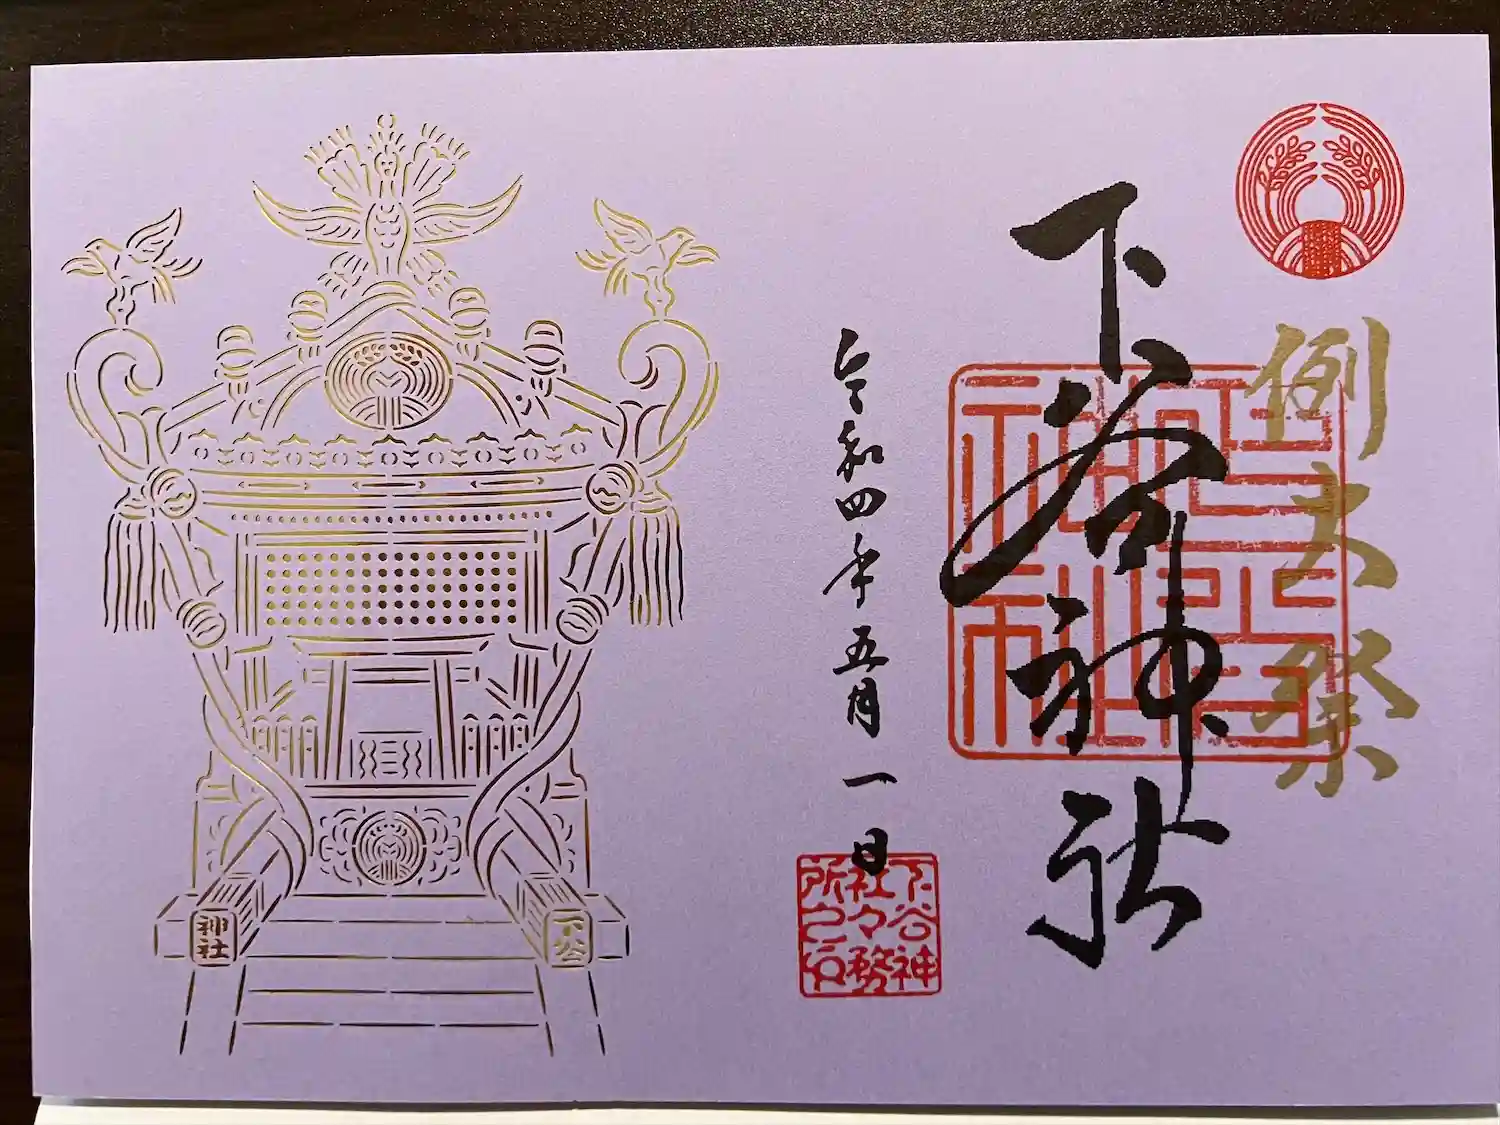 例大祭
下谷神社
令和四年五月一日
下谷神
社々務
所之印
下谷
神社